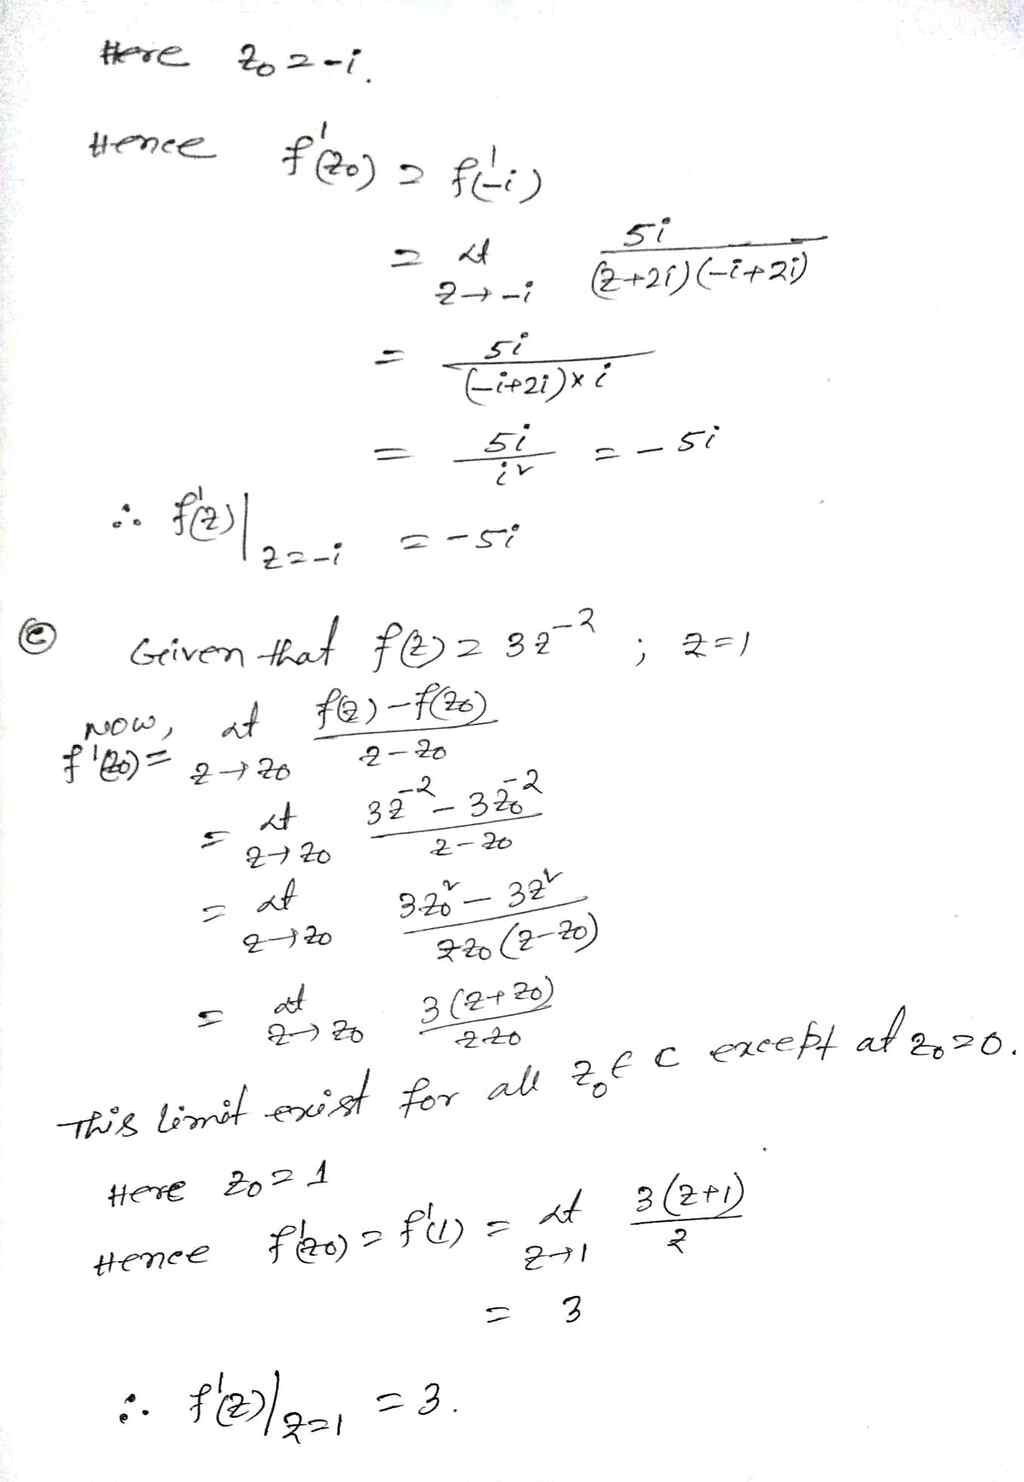 Here z₀ = -i.
Hence f'(z₀) = f'(-i)
= Lt z→-i 5i / (z+2i)(-i+2i)
= 5i / (-i+2i)×i
= 5i / i² = -5i
∴ f'(z)|z=-i = -5i
(c) Geiven that f(z) = 3z⁻² ; z=1
Now, f'(z₀) = Lt z→z₀ f(z)-f(z₀) / z-z₀
= Lt z→z₀ 3z⁻² - 3z₀⁻² / z-z₀
= Lt z→z₀ 3z₀² - 3z² / zz₀(z-z₀)
= Lt z→z₀ 3(z+z₀) / zz₀
This limit exist for all z₀ ∈ C except at z₀=0.
Here z₀ = 1
Hence f'(z₀) = f'(1) = Lt z→1 3(z+1) / 2
= 3
∴ f'(z)|z=1 = 3.